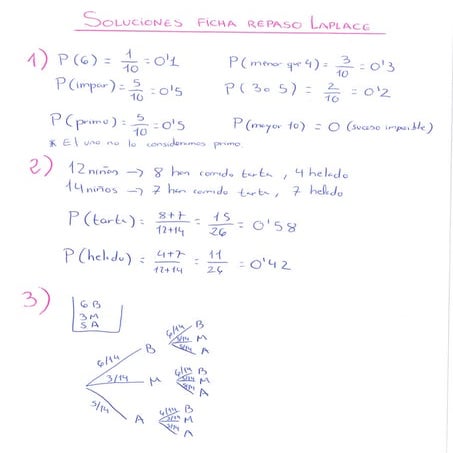 SOLUCIONES FICHA REPASO LAPLACE
1) P(6) = 1/10 = 0'1 P(menor que 4) = 3/10 = 0'3
P(impar) = 5/10 = 0'5 P(3 o 5) = 2/10 = 0'2
P(primo) = 5/10 = 0'5 P(mayor 10) = 0 (suceso imposible)
* El uno no lo consideramos primo.
2) 12 niños → 8 han comido tarta, 4 helado
14 niños → 7 han comido tarta, 7 helado
P(tarta) = 8+7/12+14 = 15/26 = 0'58
P(helado) = 4+7/12+14 = 11/26 = 0'42
3) 6B
3M
5A
6/14 B 6/14 B
3/14 M
5/14 A
3/14 M 6/14 B
3/14 M
5/14 A
5/14 A 6/14 B
3/14 M
5/14 A